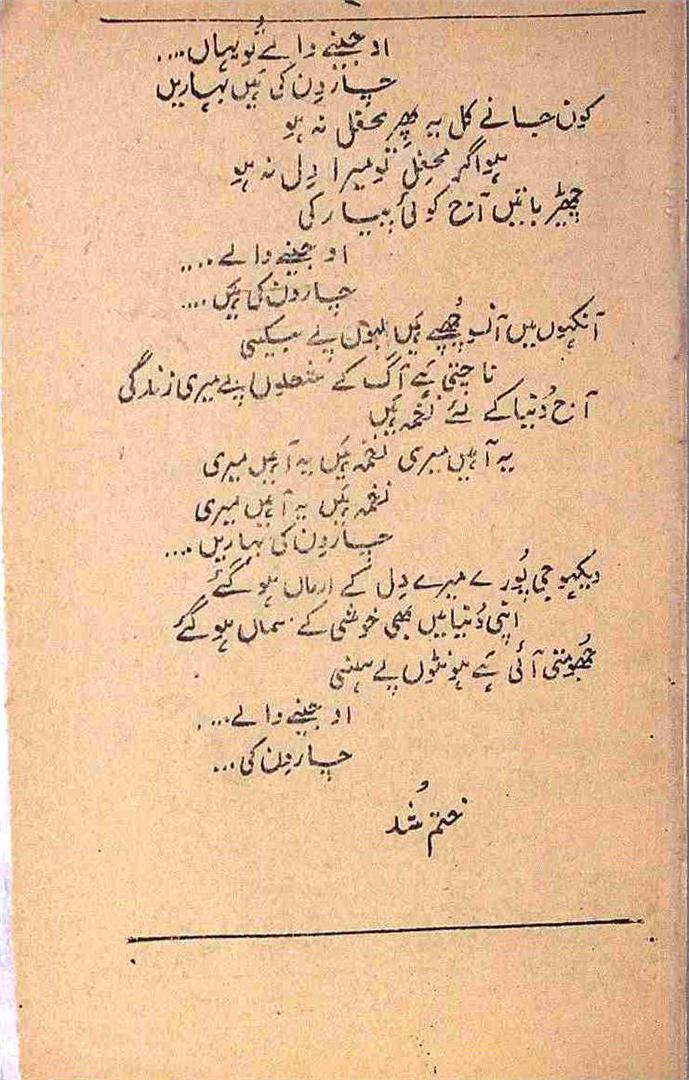 او جینے والے تُو یہاں....
چار دِن کی ہَیں بہاریں
کون جانے کل یہ پھِر محفل نہ ہو
ہو اگر محفِل تو میرا دِل نہ ہو
چھیڑ باتیں آج کوئی پیار کی
او جینے والے....
چار دن کی ہَیں....
آنکہوں میں آنسو چُھپے ہَیں لبوں پہ ہنسی
ناچتی ہَے آگ کے شعلوں پہ میری زندگی
آج دُنیا کے لئے نغمہ ہَیں
یہ آہیں میری نغمہ ہَیں یہ آہیں میری
نغمہ ہَیں یہ آہیں میری
چار دن کی بہاریں...
دیکہو جی پُورے میرے دِل کے ارماں ہو گئے
اپنی دُنیا میں بھی خوشی کے سماں ہو گئے
جُھومتی آئی ہَے ہونٹوں پہ ہنسی
او جینے والے....
چار دِن کی...
ختم شُد